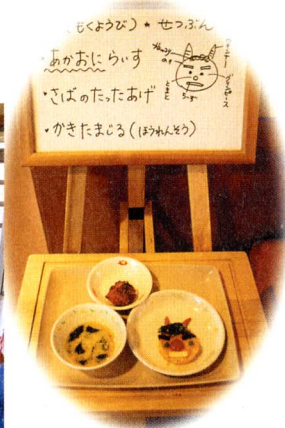 (もくようび) ★ せつぶん
・あかおにらいす
・さばのたったあげ
・かきたまじる(ほうれんそう)
チーズ